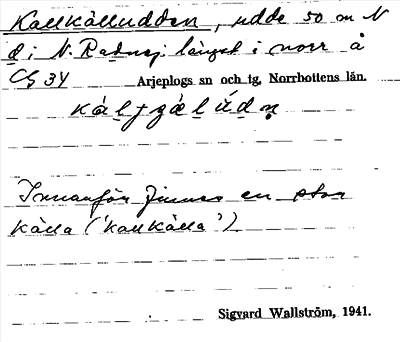 Kallkälludden, udde 50 m N
d; N. Radnej; längst i norr å
Cg 34 Arjeplogs sn och tg, Norrbottens län.
Innanför finnes en stor
källa ('kallkälla')
Sigvard Wallström, 1941.